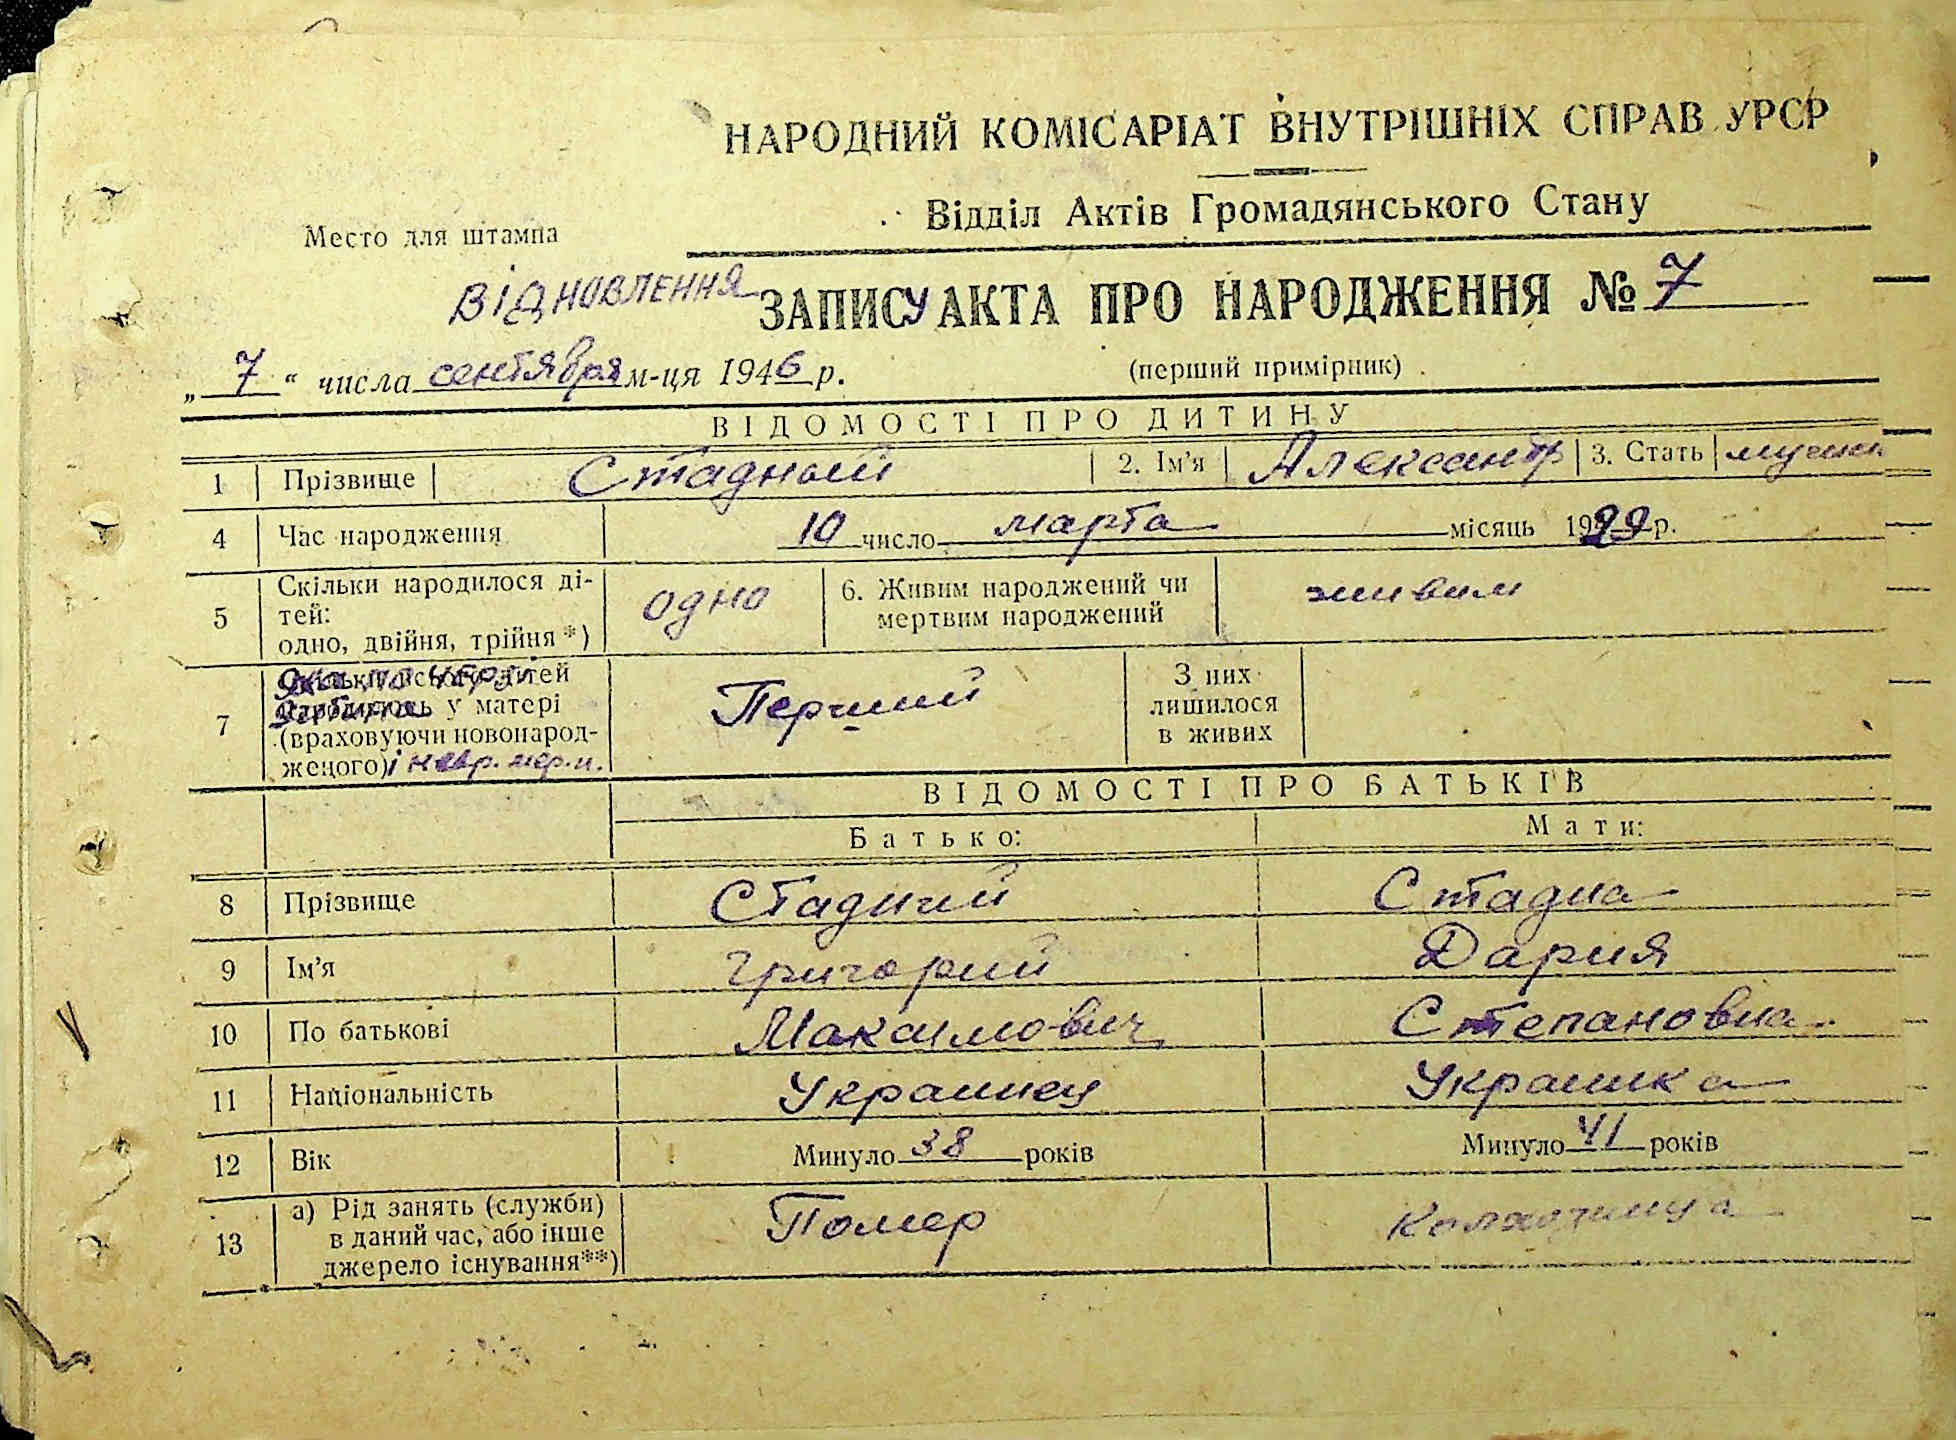 НАРОДНИЙ КОМІСАРІАТ ВНУТРІШНІХ СПРАВ УРСР
Відділ Актів Громадянського Стану
Место для штампа
ВІДНОВЛЕННЯ ЗАПИСУ АКТА ПРО НАРОДЖЕННЯ № 7
„ 7 “ числа сентября м-ця 1946 р. (перший примірник)
ВІДОМОСТІ ПРО ДИТИНУ
1 Прізвище Стадный 2. Ім'я Александр 3. Стать
4 Час народження 10 число марта місяць 1929 р.
5 Скільки народилося ді-
тей:
одно, двійня, трійня *) одно 6. Живим народжений чи
мертвим народжений живим
7 Яка по черзі дитина у матері
(враховуючи новонарод-
женого) і Первий З них
лишилося
в живих
ВІДОМОСТІ ПРО БАТЬКІВ
Батько: Мати:
8 Прізвище Стадний Стадна
9 Ім'я Григорий Дария
10 По батькові Максимович Степановна
11 Національність Украинец Украинка
12 Вік Минуло 38 років Минуло 41 років
13 а) Рід занять (служби)
в даний час, або інше
джерело існування**) Помер Колхозница